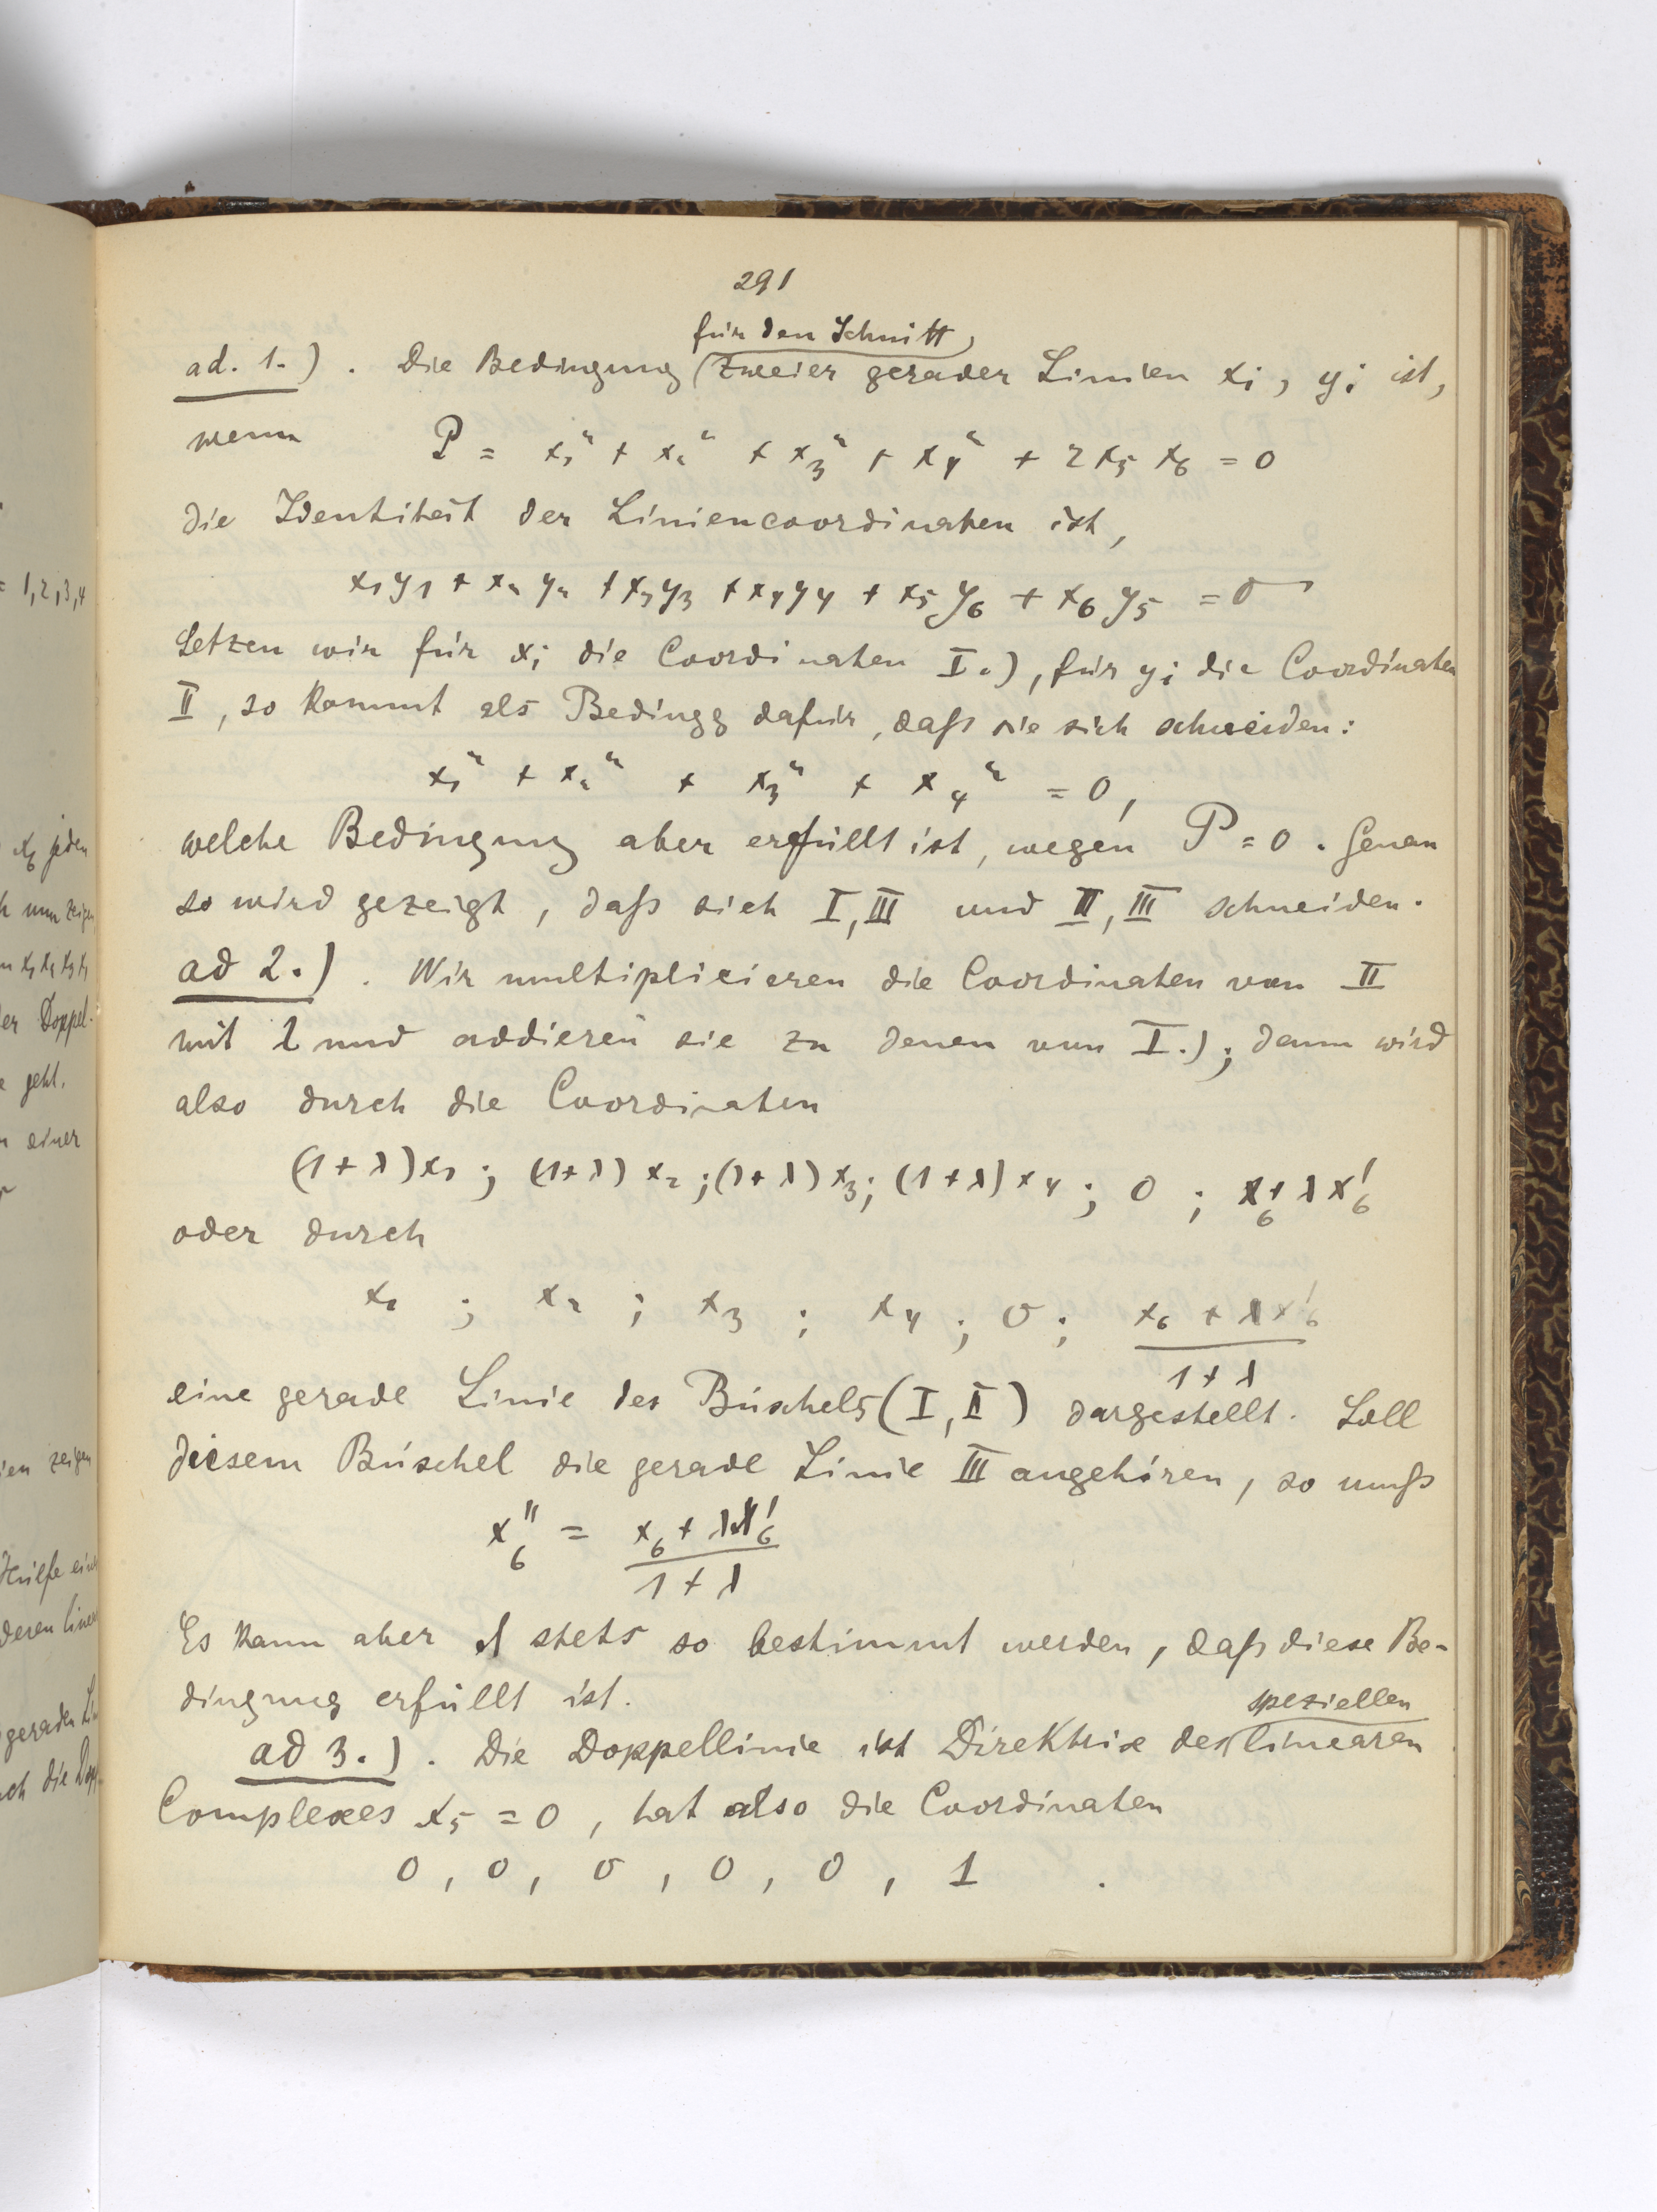 291
für den Schnitt
ad. 1.). Die Bedingung zweier gerader Linien xi, yi ist,
wenn P = x₁² + x₂² + x₃² + x₄² + 2x₅ x₆ = 0
die Identität der Liniencoordinaten ist,
x₁y₁ + x₂y₂ + x₃y₃ + x₄y₄ + x₅y₆ + x₆y₅ = 0
Setzen wir für xi die Coordinaten I.), für yi die Coordinaten
II, so kommt als Bedingg dafür, daß sie sich schneiden:
x₁² + x₂² + x₃² + x₄² = 0,
welche Bedingung aber erfüllt ist, wegen P = 0. Genau
so wird gezeigt, daß sich I, III und II, III schneiden.
ad 2.). Wir multiplicieren die Coordinaten von II
mit λ und addieren sie zu denen von I.); dann wird
also durch die Coordinaten
(1+λ)x₁; (1+λ)x₂; (1+λ)x₃; (1+λ)x₄; 0; x₆+λx₆'
oder durch
x₁ ; x₂ ; x₃ ; x₄ ; 0 ; x₆ + λx₆'
1 + λ
eine gerade Linie des Büschels (I, II) dargestellt. Soll
diesem Büschel die gerade Linie III angehören, so muß
x₆'' = x₆ + λx₆'
1 + λ
Es kann aber λ stets so bestimmt werden, daß diese Be-
dingung erfüllt ist.
speziellen
ad 3.). Die Doppellinie ist Direktrix des linearen
Complexes x₅ = 0, hat also die Coordinaten
0, 0, 0, 0, 0, 1.
= 1,2,3,4
x₆ jeden
er Doppel-
geht.
einer
zeigen
Hülfe
deren
geraden
die